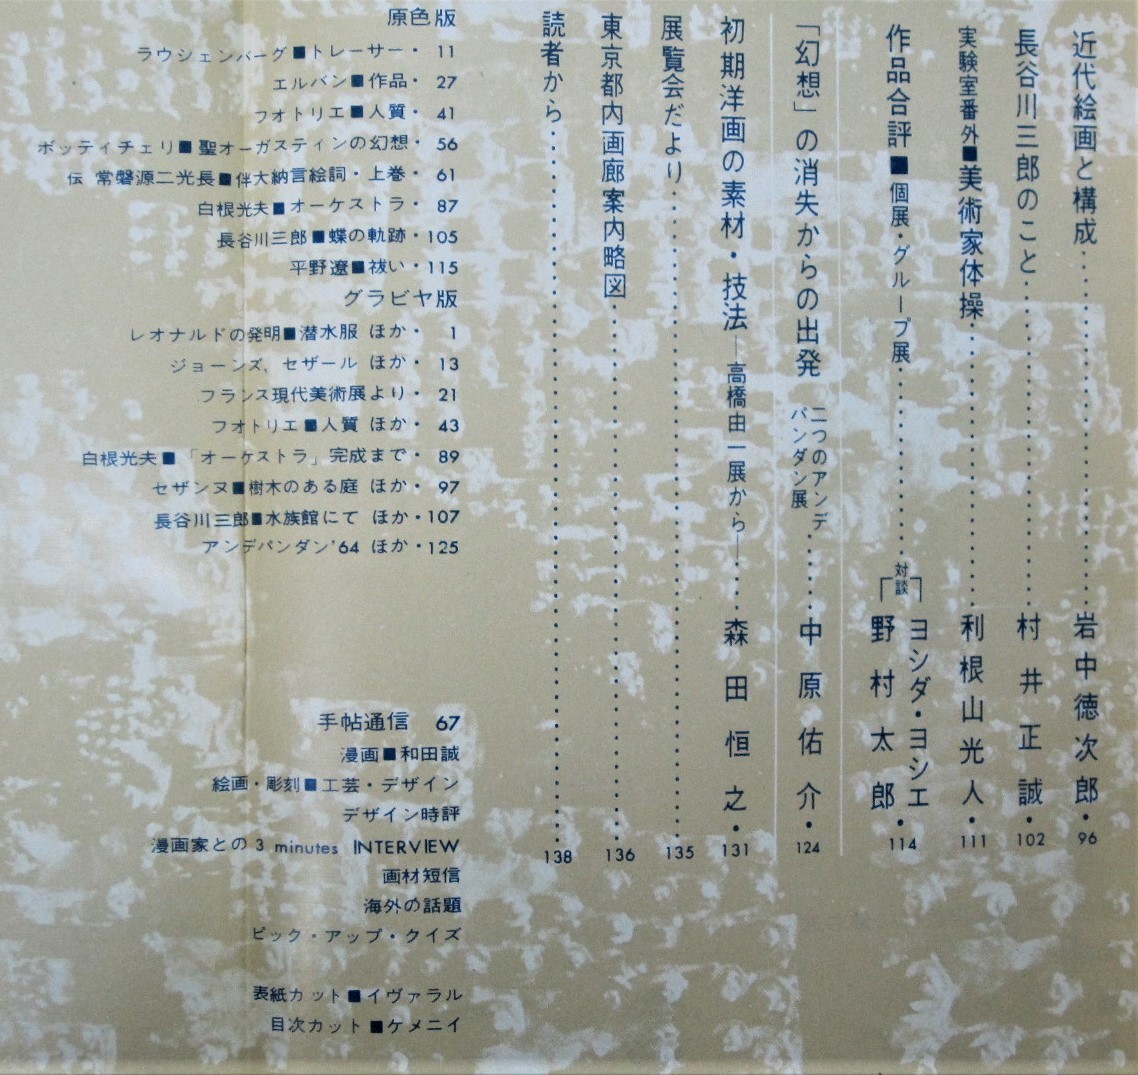 近代絵画と構成‥‥‥‥岩中徳次郎・96
長谷川三郎のこと‥‥‥‥村井正誠・102
実験室番外■美術家体操‥‥‥‥利根山光人・111
作品合評■個展・グループ展‥‥‥‥対談 ヨシダ・ヨシエ 野村太郎・114
「幻想」の消失からの出発 二つのアンデパンダン展‥‥‥‥中原佑介・124
初期洋画の素材・技法―高橋由一展から―‥‥‥‥森田恒之・131
展覧会だより‥‥‥‥135
東京都内画廊案内略図‥‥‥‥136
読者から‥‥‥‥138
原色版
ラウシェンバーグ■トレーサー・11
エルバン■作品・27
フォトリエ■人質・41
ボッティチェリ■聖オーガスティンの幻想・56
伝 常磐源二光長■伴大納言絵詞・上巻・61
白根光夫■オーケストラ・87
長谷川三郎■蝶の軌跡・105
平野遼■祓い・115
グラビヤ版
レオナルドの発明■潜水服 ほか・1
ジョーンズ、セザール ほか・13
フランス現代美術展より・21
フォトリエ■人質 ほか・43
白根光夫■「オーケストラ」完成まで・89
セザンヌ■樹木のある庭 ほか・97
長谷川三郎■水族館にて ほか・107
アンデパンダン'64 ほか・125
手帖通信 67
漫画■和田誠
絵画・彫刻■工芸・デザイン
デザイン時評
漫画家との3 minutes INTERVIEW
画材短信
海外の話題
ピック・アップ・クイズ
表紙カット■イヴァラル
目次カット■ケメニイ